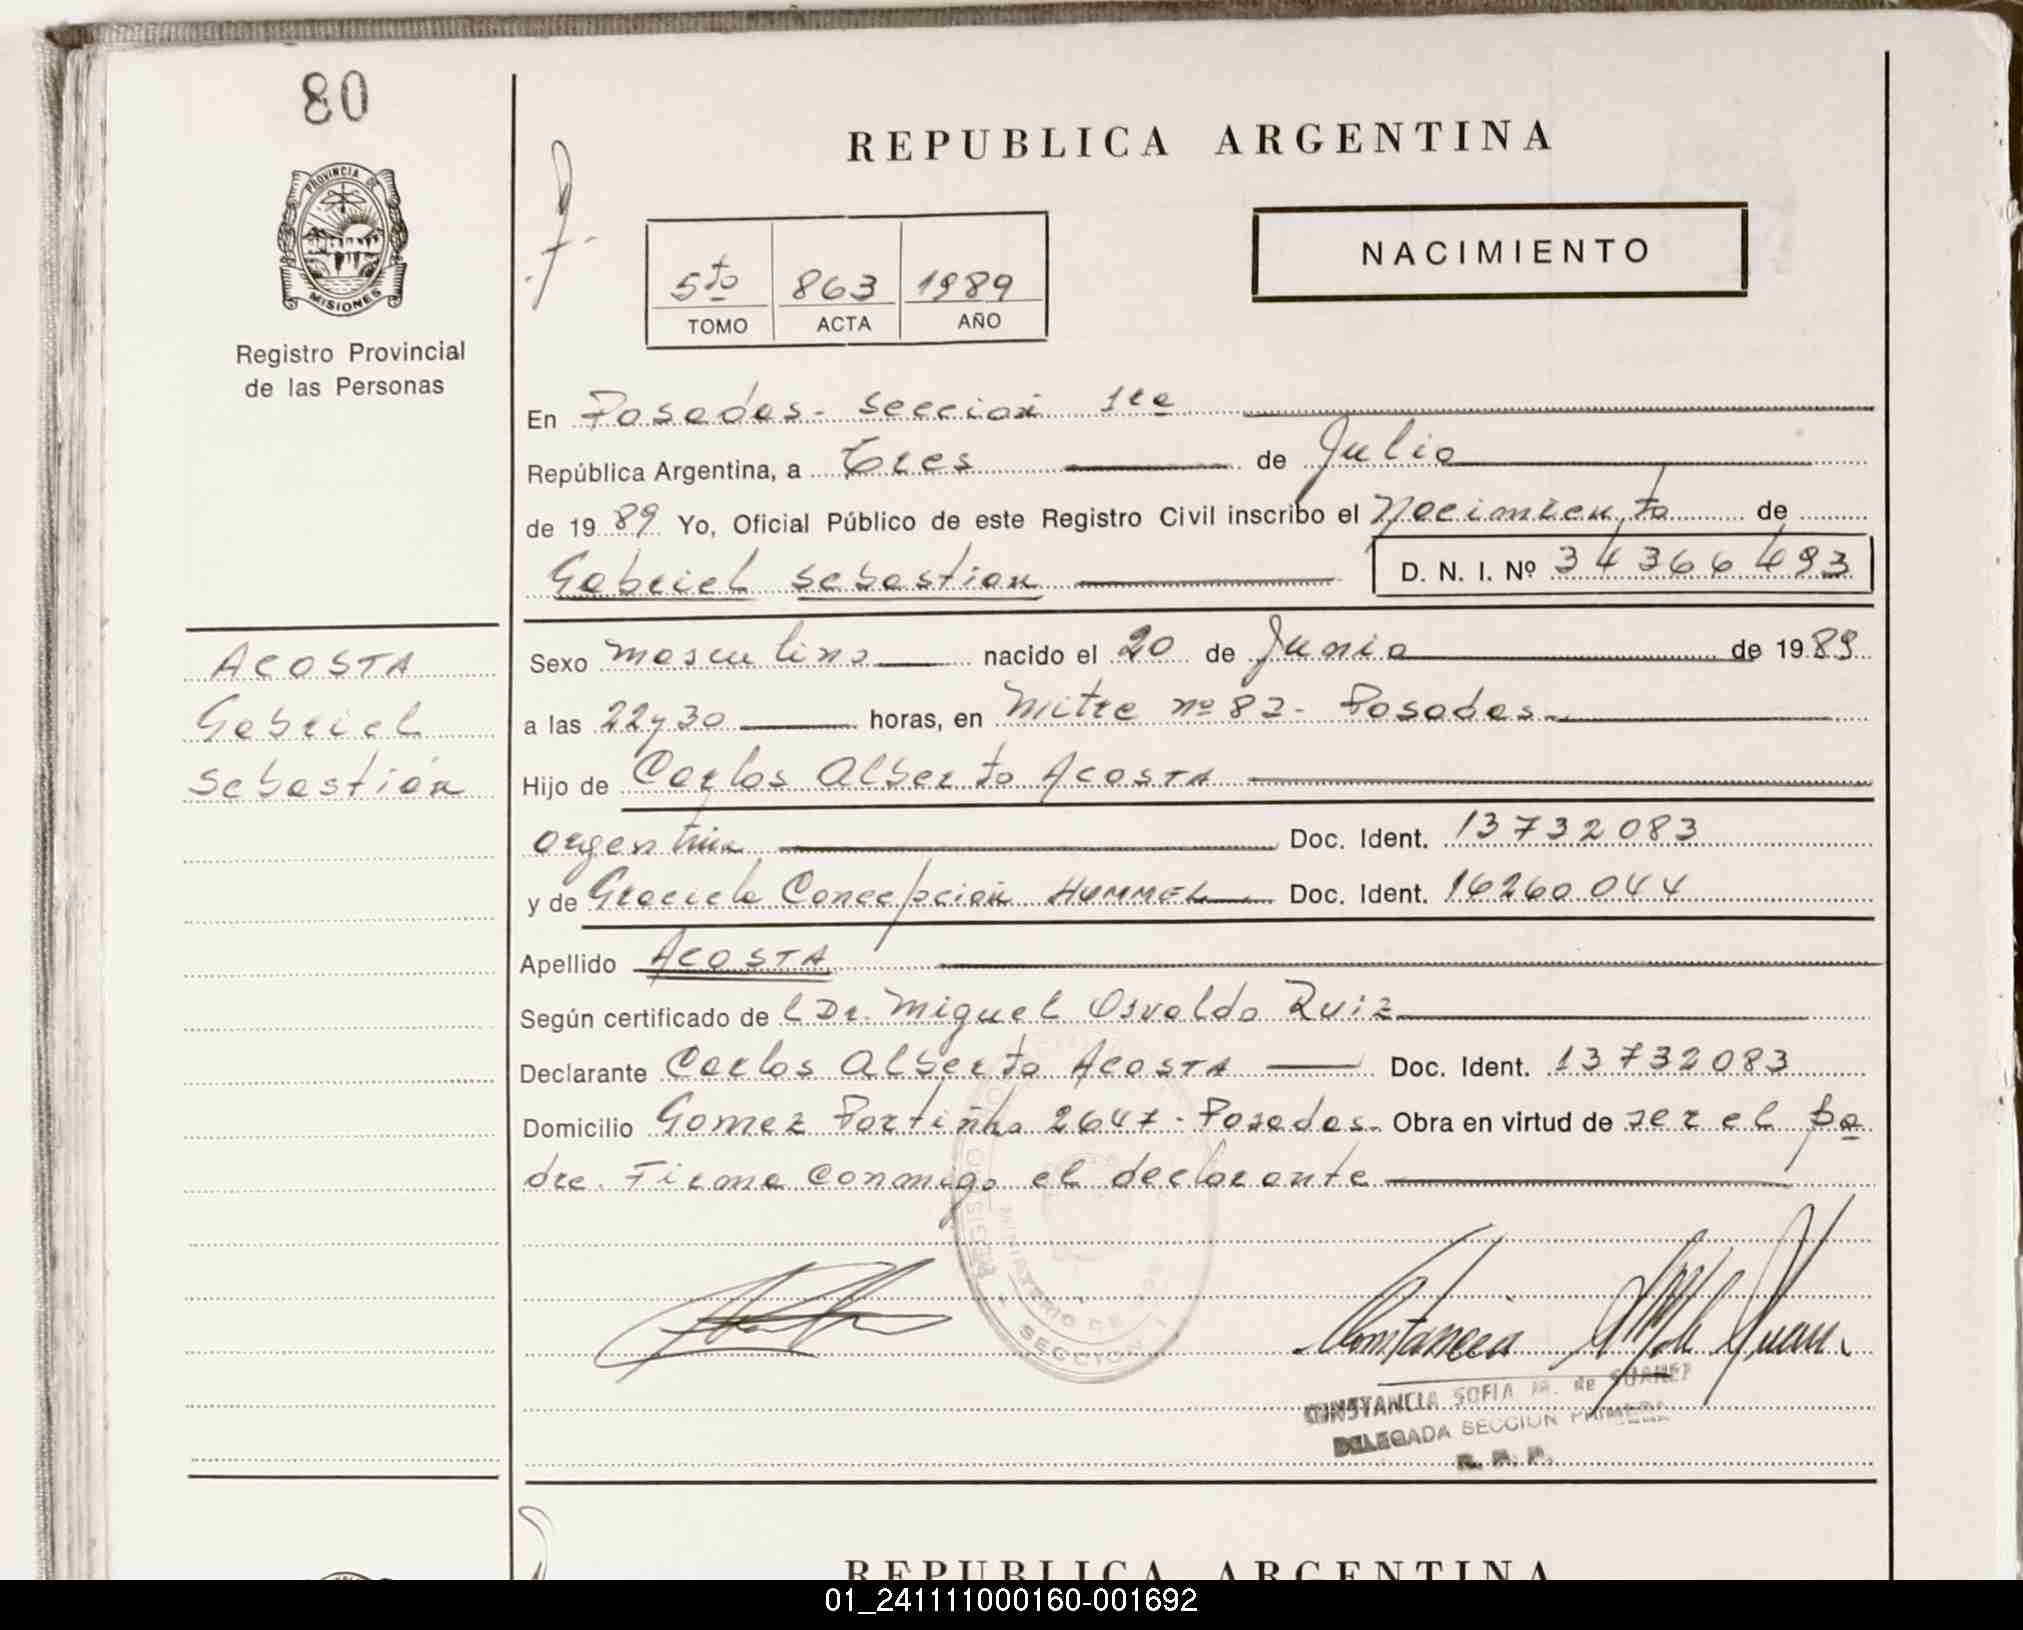 80
REPUBLICA ARGENTINA
PROVINCIA DE
MISIONES
Registro Provincial
de las Personas
NACIMIENTO
5to 863 1989
TOMO ACTA AÑO
En Posadas - Sección 1ra
República Argentina, a Tres de Julio
de 1989 Yo, Oficial Público de este Registro Civil inscribo el Nacimiento de
Gabriel Sebastián D. N. I. Nº 34366493
ACOSTA
Gabriel
Sebastián
Sexo masculino nacido el 20 de Junio de 1989
a las 22y30 horas, en Mitre nº 82 - Posadas
Hijo de Carlos Alberto ACOSTA
argentina Doc. Ident. 13732083
y de Graciela Concepción HUMMEL Doc. Ident. 16260044
Apellido ACOSTA
Según certificado de l Dr. Miguel Osvaldo Ruiz
Declarante Carlos Alberto ACOSTA Doc. Ident. 13732083
Domicilio Gomez Portinho 2647 - Posadas - Obra en virtud de ser el pa
dre. Firma conmigo el declarante
MINISTERIO DE
SECCION 1
CONSTANCIA SOFIA M. de SUAREZ
DELEGADA SECCION PRIMERA
R. P. P.
REPUBLICA ARGENTINA
01_241111000160-001692